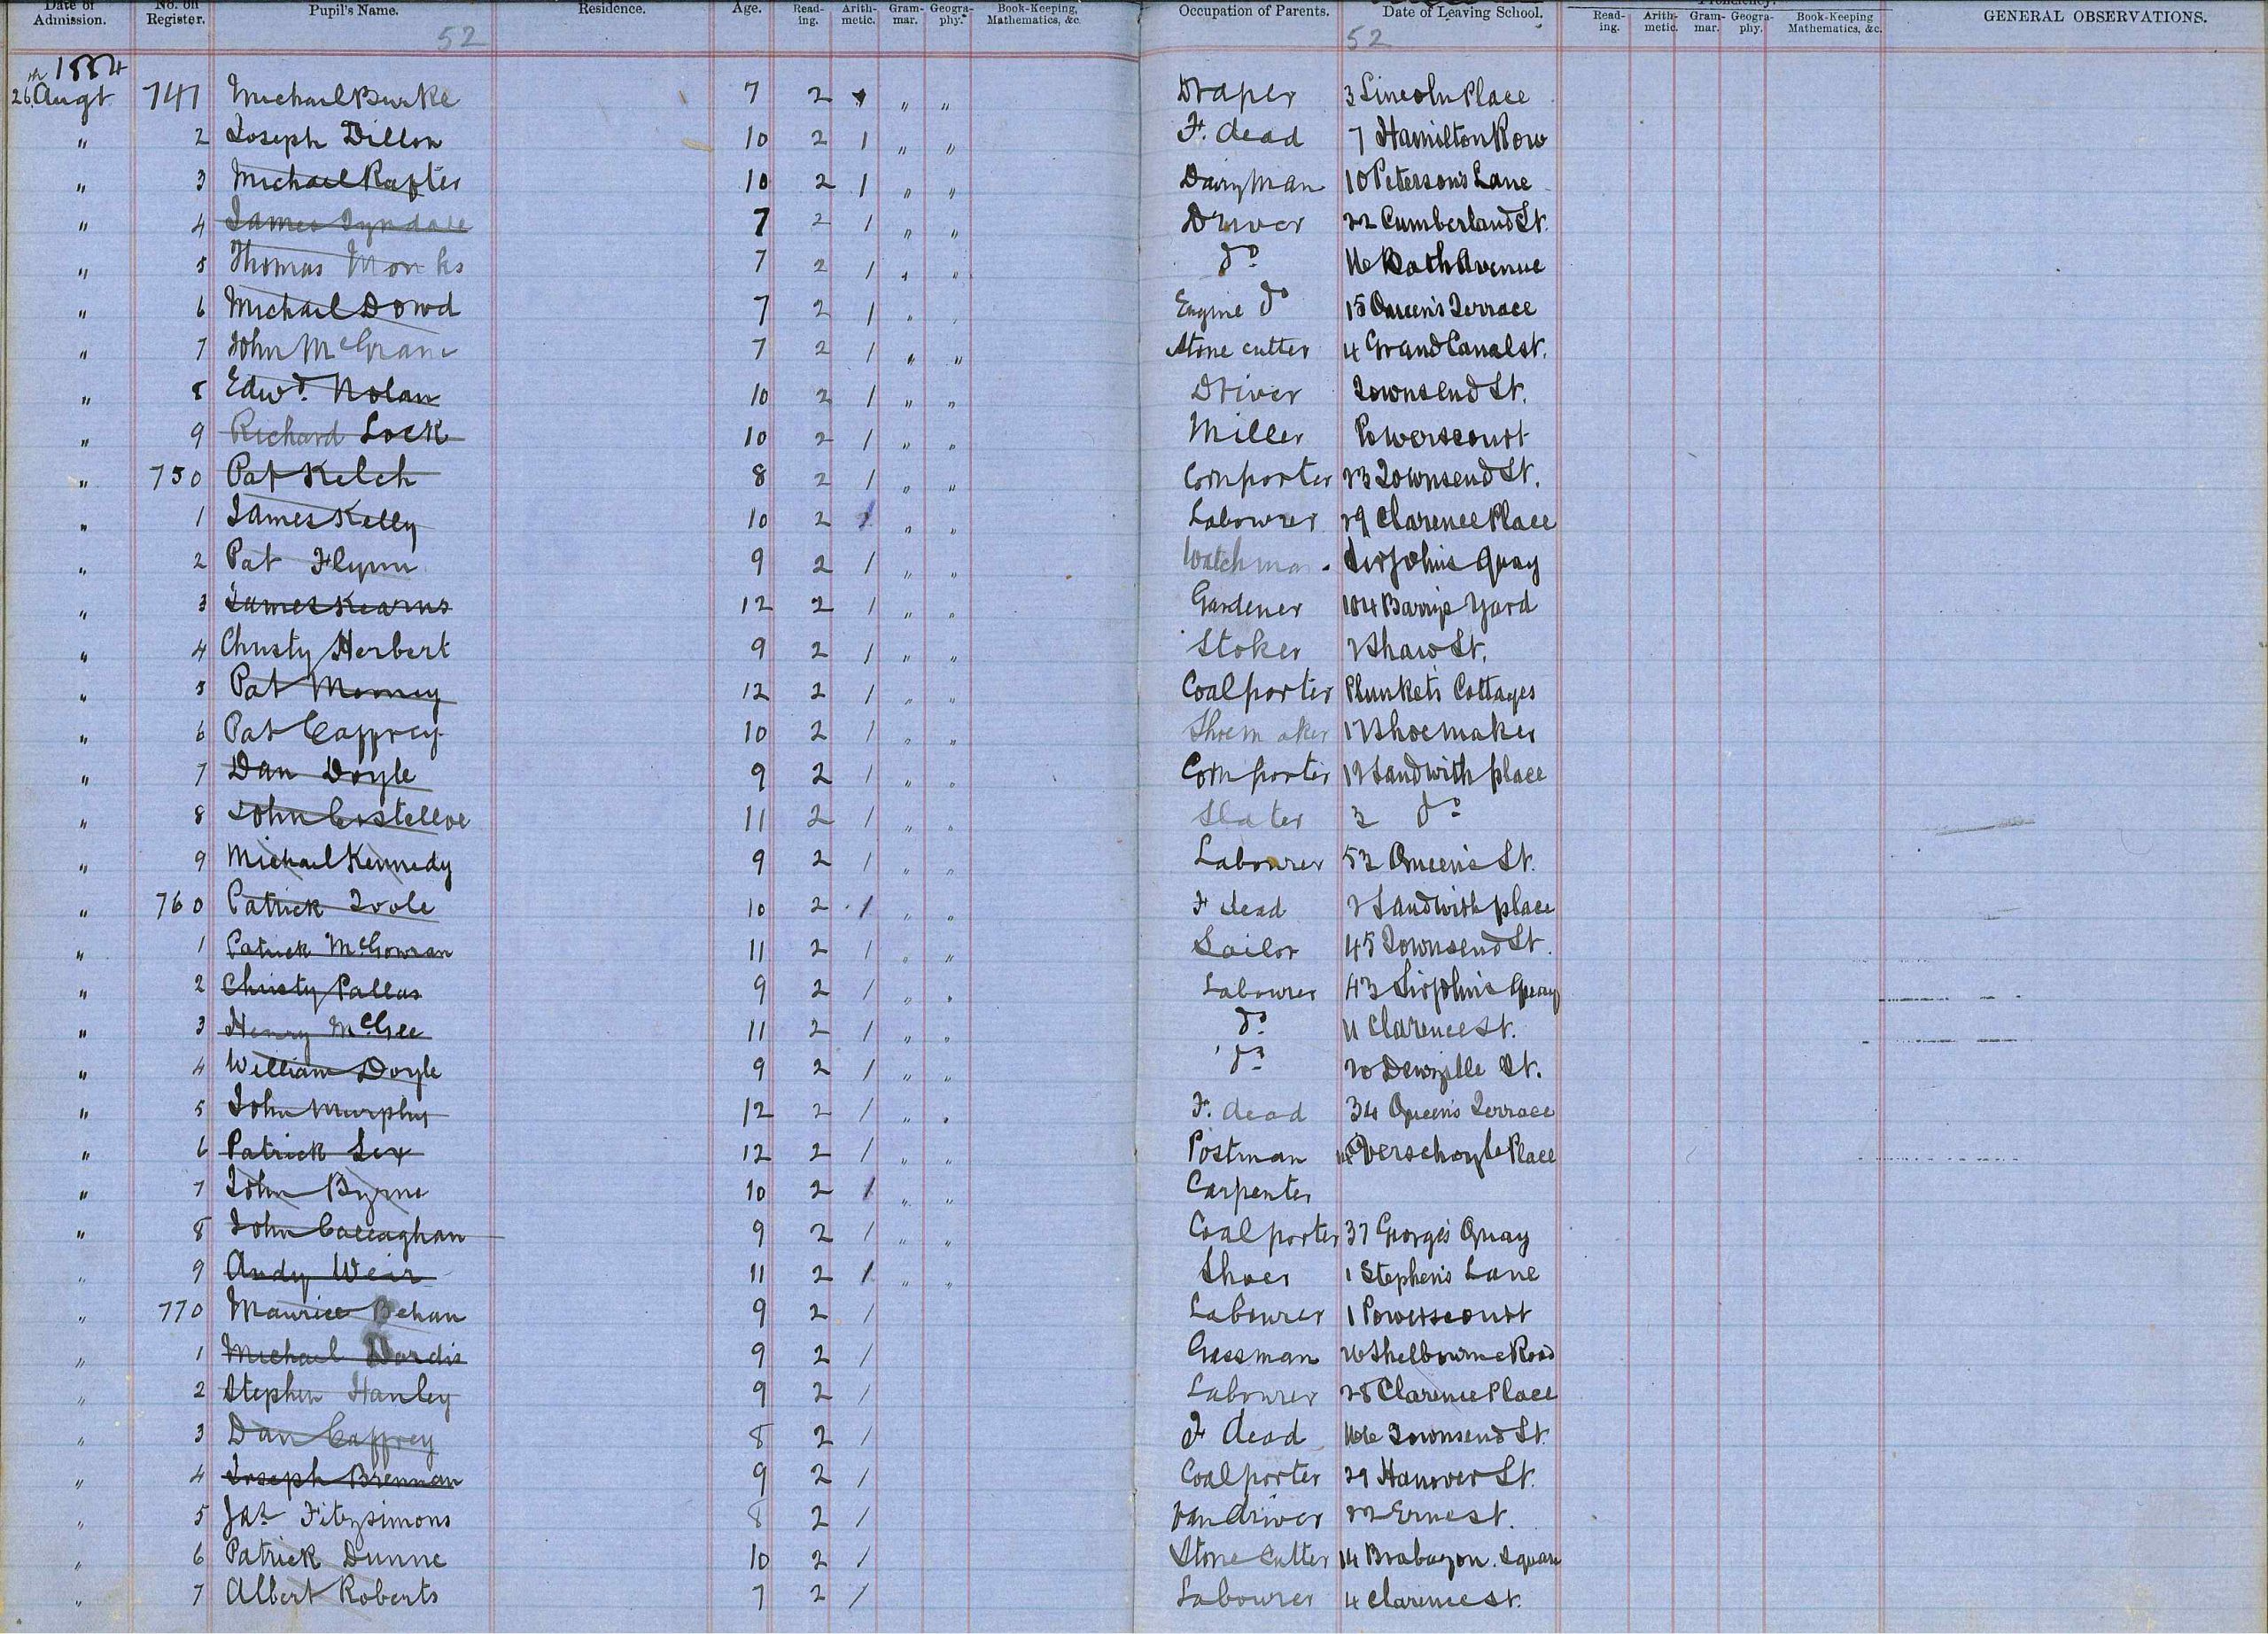 Date of Admission. No. on Register. Pupil's Name. Residence. Age. Read-ing. Arith-metic. Gram-mar. Geogra-phy. Book-Keeping, Mathematics, &c. Occupation of Parents. Date of Leaving School. Read-ing. Arith-metic. Gram-mar. Geogra-phy. Book-Keeping Mathematics, &c. GENERAL OBSERVATIONS.
52 52
1884
26th Augt 741 Michael Burke 7 2 1 " " Draper 3 Lincoln Place
" 2 Joseph Dillon 10 2 1 " " F. dead 7 Hamilton Row
" 3 Michael Rafter 10 2 1 " " Dairyman 10 Peterson's Lane
" 4 James Tyndall 7 2 1 " " Driver 22 Cumberland St.
" 5 Thomas Monks 7 2 1 " " Do Bath Avenue
" 6 Michael Dowd 7 2 1 " " Engine Do 15 Queen's Terrace
" 7 John McGrane 7 2 1 " " Stone cutter 4 Grand Canal St.
" 8 Edwd. Nolan 10 2 1 " " Driver Townsend St.
" 9 Richard Lock 10 2 1 " " Miller Powerscourt
" 750 Pat Kelch 8 2 1 " " Cornporter 23 Townsend St.
" 1 James Kelly 10 2 1 " " Labourer 29 Clarence Place
" 2 Pat Flynn 9 2 1 " " Watchman Sir John's Quay
" 3 James Kearns 12 2 1 " " Gardener 104 Barry's Yard
" 4 Christy Herbert 9 2 1 " " Stoker 2 Shaw St.
" 5 Pat Mooney 12 2 1 " " Coalporter Plunket's Cottages
" 6 Pat Caffrey 10 2 1 " " Shoemaker 12 Shoemaker
" 7 Dan Doyle 9 2 1 " " Corn porter 12 Sandwith place
" 8 John Costelloe 11 2 1 " " Slater 3 Do
" 9 Michael Kennedy 9 2 1 " " Labourer 53 Queen's St.
" 760 Patrick Toole 10 2 1 " " F dead 2 Sandwith place
" 1 Patrick McGowran 11 2 1 " " Sailor 45 Townsend St.
" 2 Christy Pallas 9 2 1 " " Labourer 43 Sir John's Quay
" 3 Henry McGee 11 2 1 " " Do 11 Clarence St.
" 4 William Doyle 9 2 1 " " Do 20 Denzille St.
" 5 John Murphy 12 2 1 " " F. dead 34 Queen's Terrace
" 6 Patrick Lex 12 2 1 " " Postman Verschoyle Place
" 7 John Byrne 10 2 1 " " Carpenter
" 8 John Callaghan 9 2 1 " " Coal porter 37 George's Quay
" 9 Andy Weir 11 2 1 " " Shoer 1 Stephen's Lane
" 770 Maurice Behan 9 2 1 Labourer 1 Powerscourt
" 1 Michael Wardis 9 2 1 Gassman Shelbourne Road
" 2 Stephen Hanley 9 2 1 Labourer 28 Clarence Place
" 3 Dan Caffrey 8 2 1 F dead 166 Townsend St.
" 4 Joseph Brennan 9 2 1 Coalporter 29 Hanover St.
" 5 Jas Fitzsimons 8 2 1 Van driver 22 Erne St.
" 6 Patrick Dunne 10 2 1 Stone Cutter 14 Brabazon Square
" 7 Albert Roberts 7 2 1 Labourer 4 Clarence St.